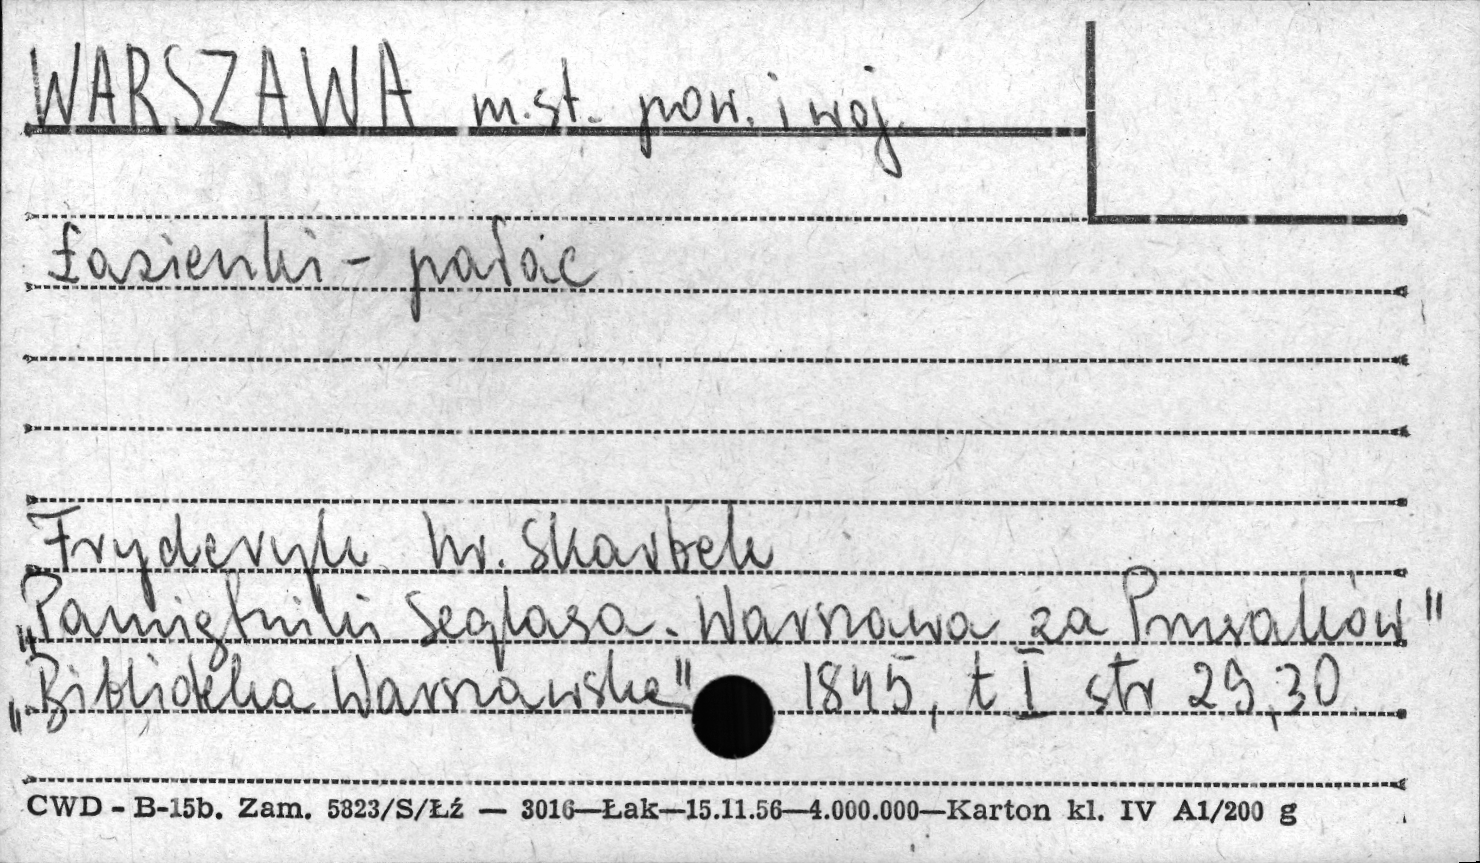 WARSZAWA m.st. pow. i woj.
Łazienki - pałac
Fryderyk hr. Skarbek
„Pamiętniki Seglasa. Warszawa za Prusaków"
„Biblioteka Warszawska" 1845, t I str 29,30
CWD - B-15b. Zam. 5823/S/Łź — 3016—Łak—15.11.56—4.000.000—Karton kl. IV A1/200 g